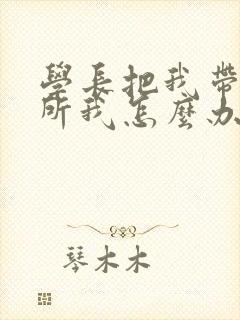 學長把我帶
所我怎麼办
琴木木